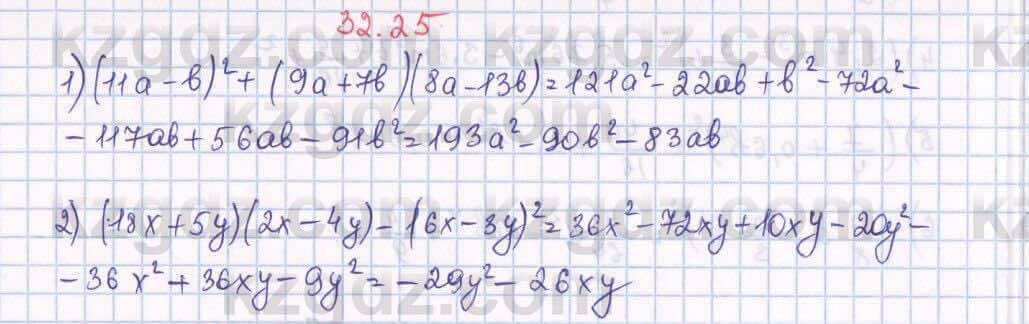 32.25
1) (11a - b)² + (9a + 7b)(8a - 13b) = 121a² - 22ab + b² - 72a² -
- 117ab + 56ab - 91b² = 193a² - 90b² - 83ab
2) (18x + 5y)(2x - 4y) - (6x - 3y)² = 36x² - 72xy + 10xy - 20y² -
- 36x² + 36xy - 9y² = - 29y² - 26xy